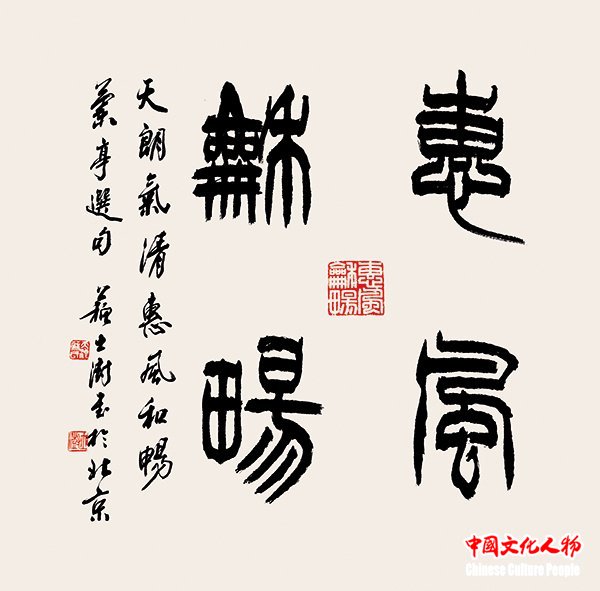 惠風
龢暢
惠風龢暢
天朗氣清惠風和暢
蘭亭選句 蘇士澍書於北京
中國文化人物
Chinese Culture People